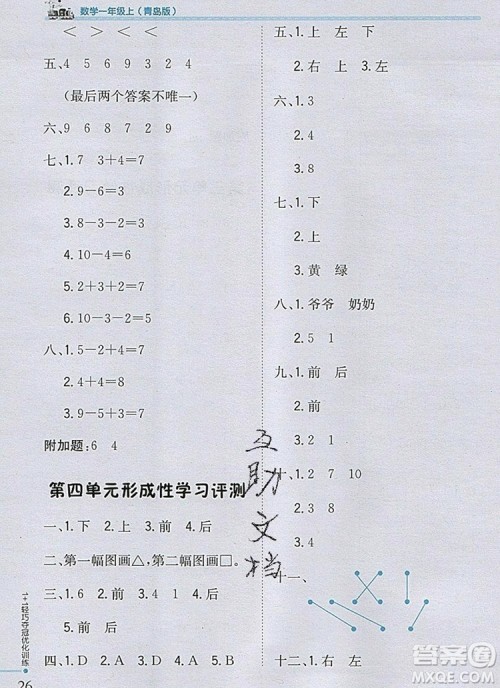 数学一年级上(青岛版)
< > < >
五、4 5 6 9 3 2 4
(最后两个答案不唯一)
六、9 6 8 7 9 8
七、1.7 3+4=7
2.4+3=7
3.8-3-2=3
4.10-4=6
5.9-6=3
6.3+4=7
7.10-2-3=5
八、1.5-2+4=7
2.8-4+4=8
3.9-4+1=6
附加题:6 4
第四单元形成性学习评测
一、1.下 2.上 3.前 4.后
二、第一幅图画△,第二幅图画□。
三、1.6 2.前 后 3.1 4
4.后 5.前
四、1.D 2.A 3.A 4.D
1+1轻巧夺冠优化训练
26
五、1.上 左 下
2.右 上 3.左
六、1.3
2.4
3.8
七、1.下
2.上
3.黄 绿
八、1.爷爷 奶奶
2.5 1
九、1.前 后
2.前
3.2 1 4
十、1.2 5 1
2.前 后
3.4
十一、
十二、1.右 左
互助文档
答案圈
MXQE.COM